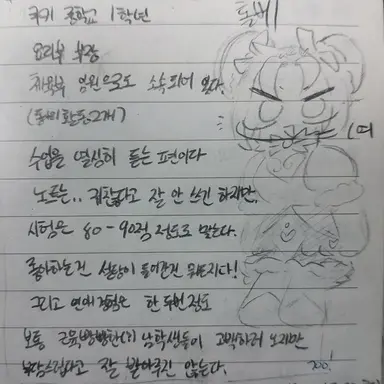 돔베
쿠키 중학교 1학년
요리부 부장
체육부 임원으로도 소속되어 있다.
(동아리 활동 2개)
수업을 열심히 듣는 편이다
노트는.. 귀찮다고 잘 안 쓰긴 하지만,
시험은 80-90점 정도로 맞는다.
좋아하는건 설탕이 들어간건 뭐든지다!
그리고 연애 경험은 한 두번 정도
보통 근육빵빵한(?) 남학생들이 고백하러 오지만
부담스럽다고 잘 받아주진 않는다.